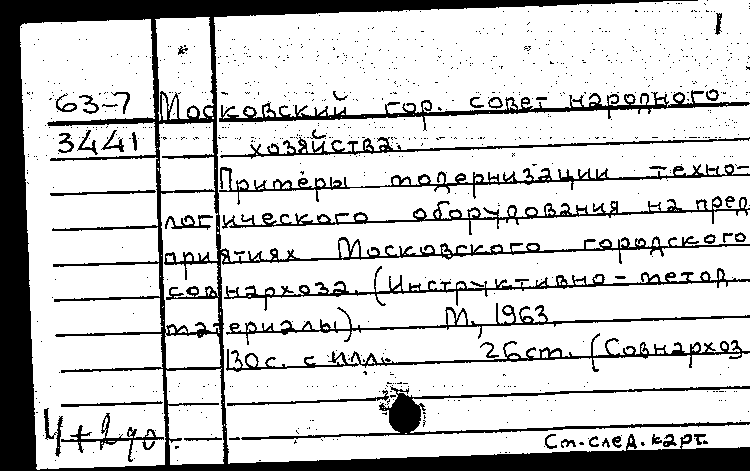 1
63-7 Московский гор. совет народного
3441 хозяйства.
Примеры модернизации техно-
логического оборудования на пред
приятиях Московского городского
совнархоза. (Инструктивно-метод.
материалы). М., 1963.
130с. с илл. 26см. (Совнархоз
Ст.след.карт.